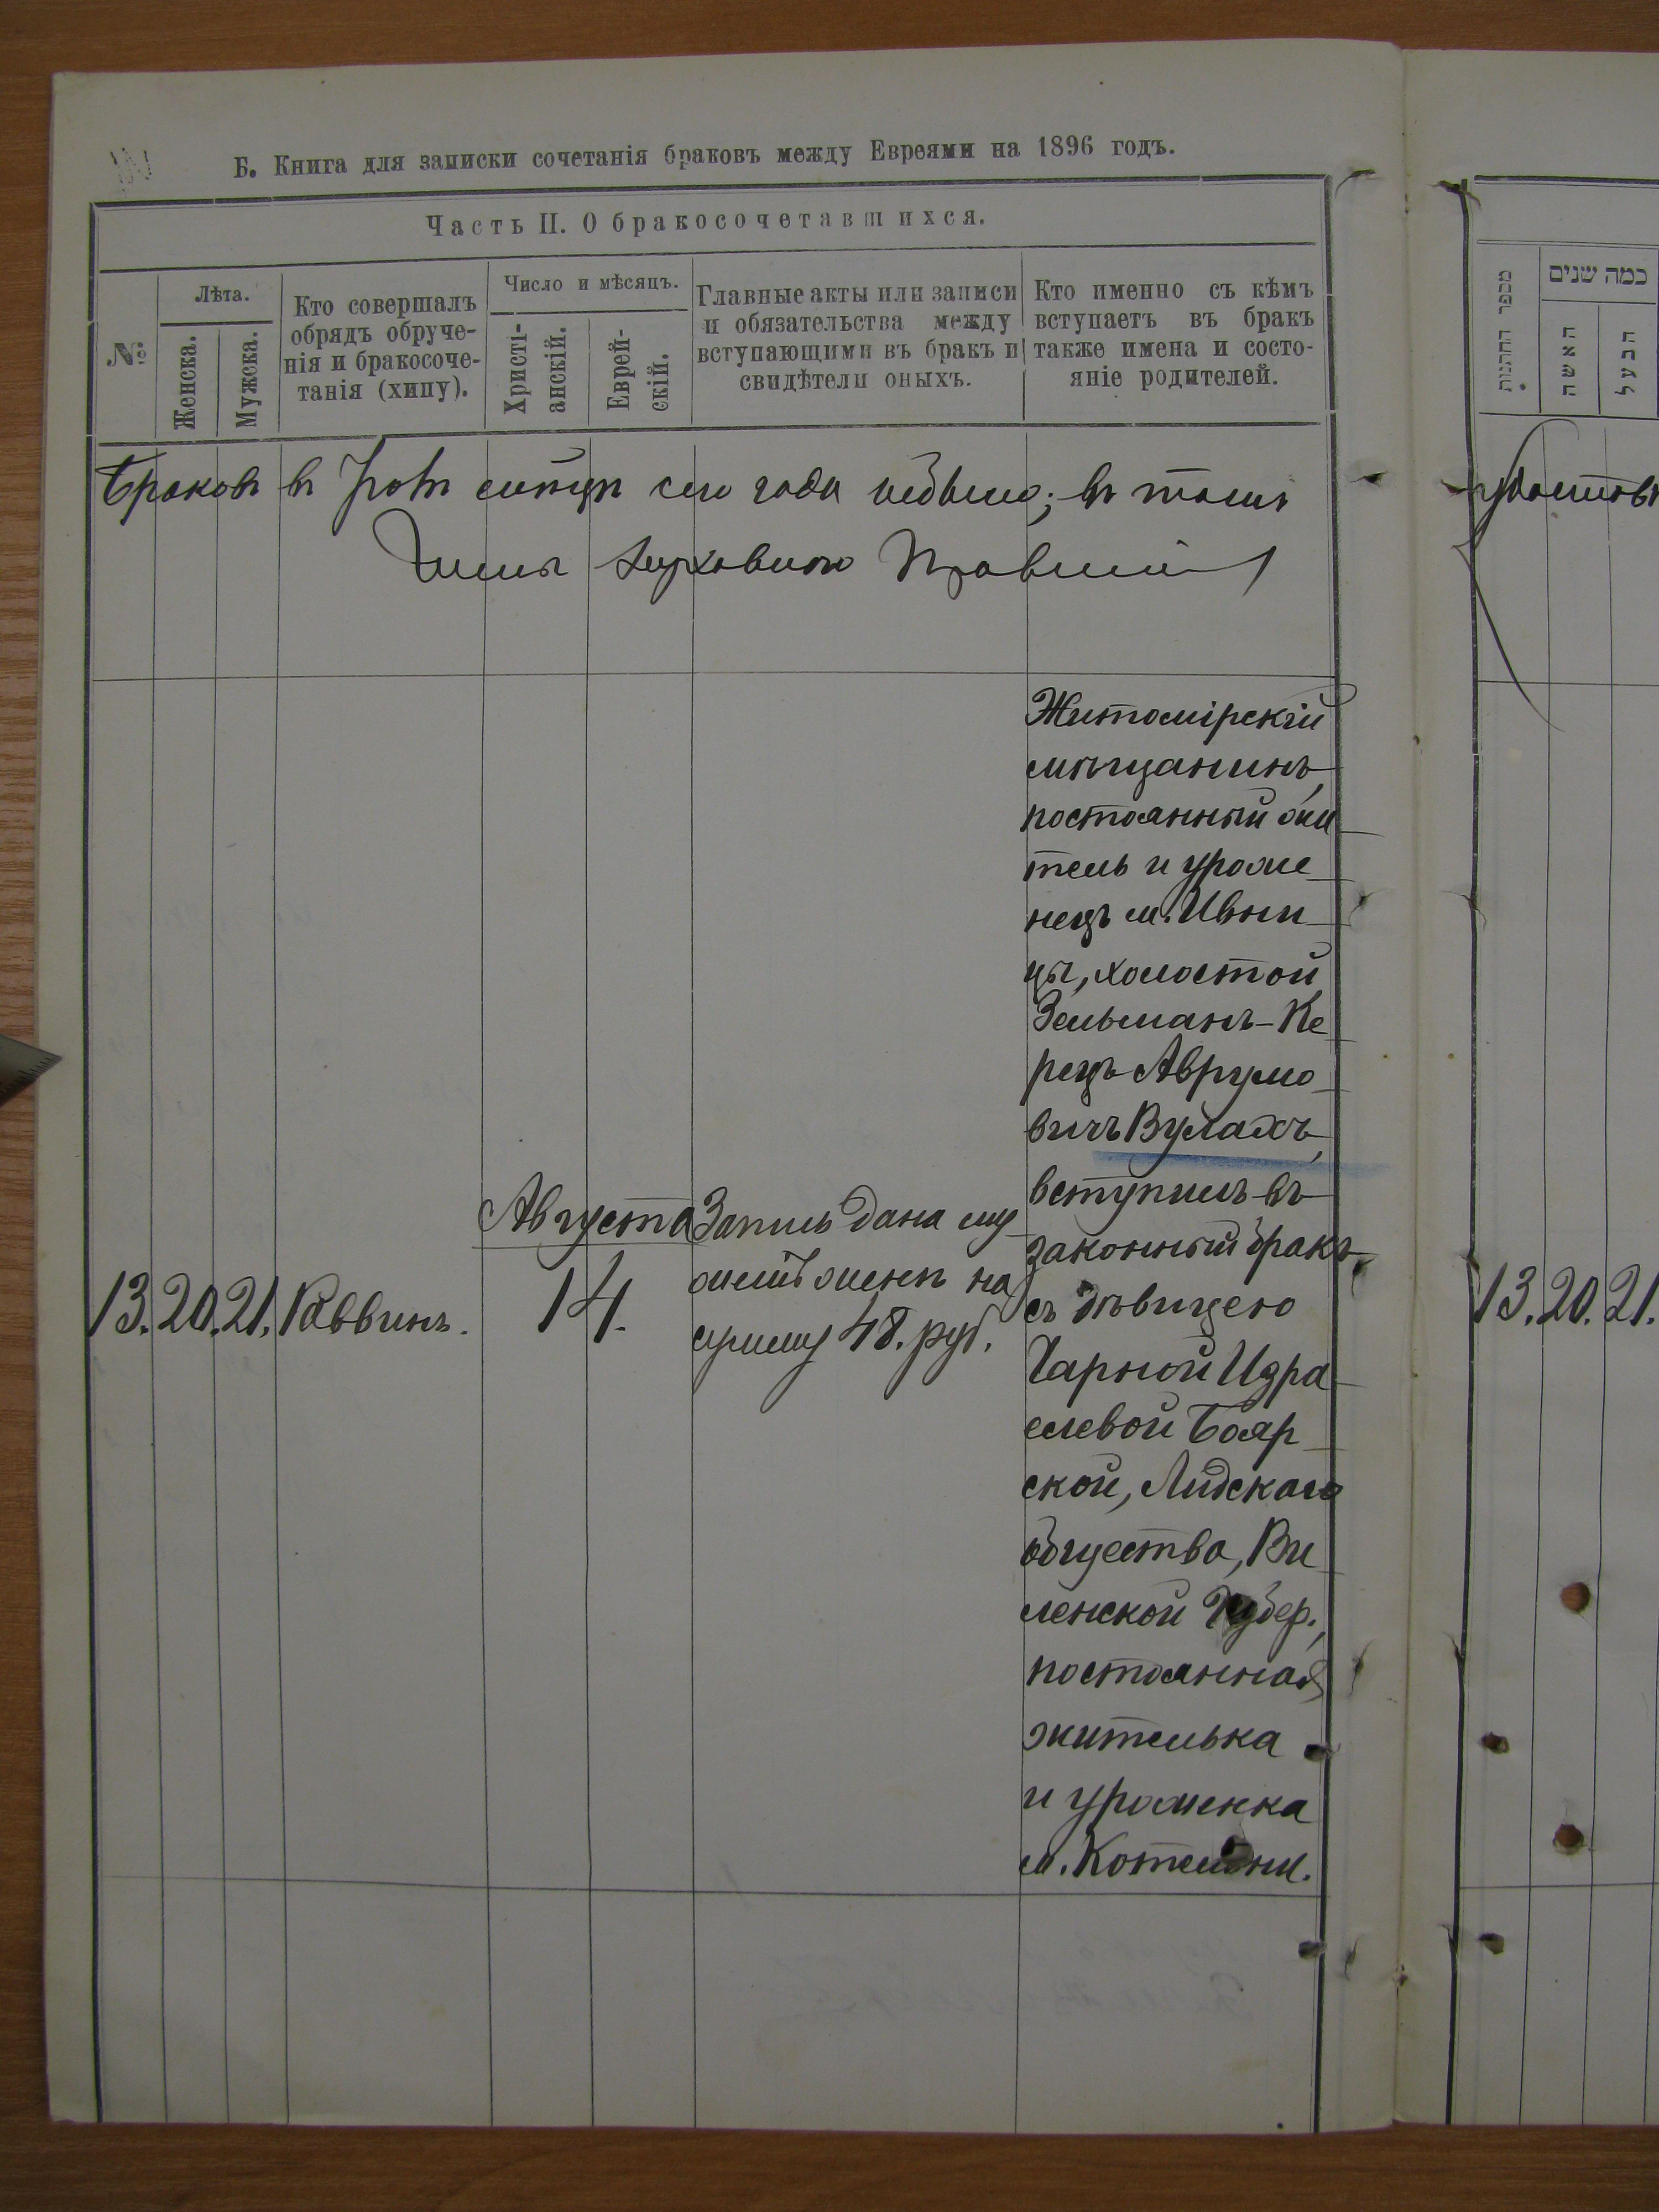 Б. Книга для записки сочетанія браковъ между Евреями на 1896 годъ.
Часть II. О бракосочетавшихся.
№
Лѣта.
Женска.
Мужска.
Кто совершалъ
обрядъ обруче-
нія и бракосоче-
танія (хипу).
Число и мѣсяцъ.
Христі-
анскій.
Еврей-
скій.
Главные акты или записи
и обязательства между
вступающими въ бракъ и
свидѣтели оныхъ.
Кто именно съ кѣмъ
вступаетъ въ бракъ
также имена и состо-
яніе родителей.
Браковъ въ сего года небыло; въ томъ
Членъ Духовного Правленія
Житомірскій
мѣщанинъ,
постоянный жи
тель и уроже
нецъ м. Ивни
цы, холостой
Зельманъ-Ке
рецъ Аврумо
вичъ Вулахъ,
вступилъ въ
законный бракъ
съ дѣвицею
Чарной Изра
елевой Бояр
ской, Лидскаго
общества, Ви
ленской Губер.,
постоянная
жителька
и уроженка
м. Котельни.
13. 20. 21. Раввинъ.
Августа
14.
Запись дана му
жемъ женѣ на
сумму 48. руб.
מספר החתונות
כמה שנים
האשה
הבעל
13. 20. 21.